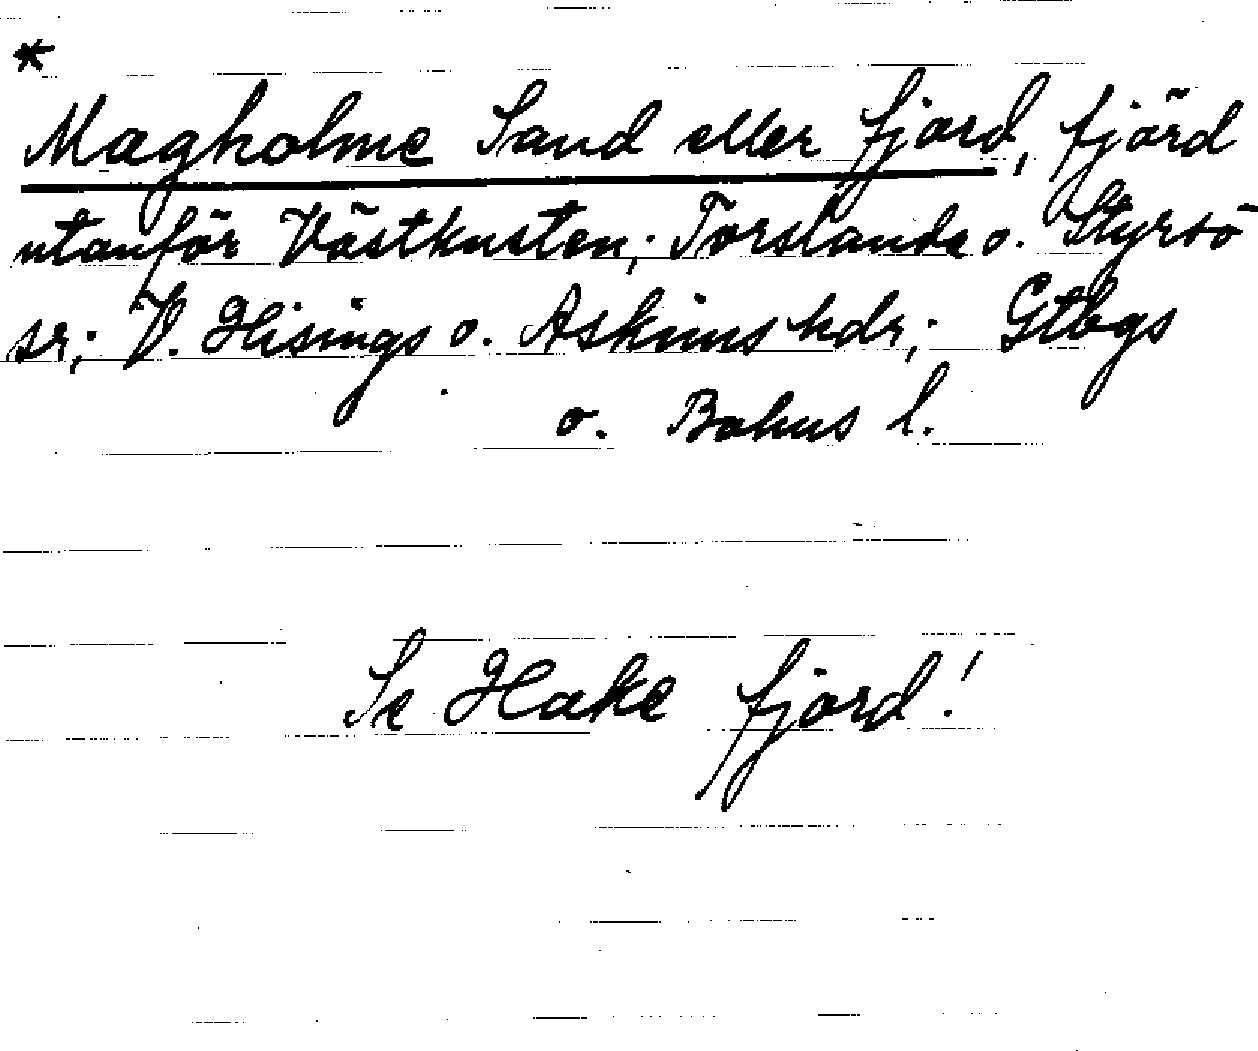 *
Magholme Sand eller fjord, fjärd
utanför Västkusten; Torslanda o. Styrsö
sr; V. Hisings o. Askims hdr; Gtbgs
o. Bohus l.
Se Hake fjord!